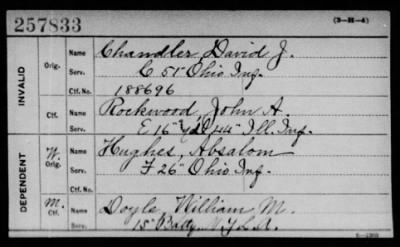 257833
(3-H-4)
INVALID
Orig.
Name Chandler, David J.
Serv. C 51" Ohio Inf.
Ctf. No. 188696
Ctf.
Name Rockwood, John A.
Serv. E 16" & D, 44" Ill. Inf.
DEPENDENT
W.
Orig.
Name Hughes, Absalom
Serv. F 26" Ohio Inf.
M.
Ctf.
Name Doyle William M.
Serv. 15" Batty N.Y. L. A.